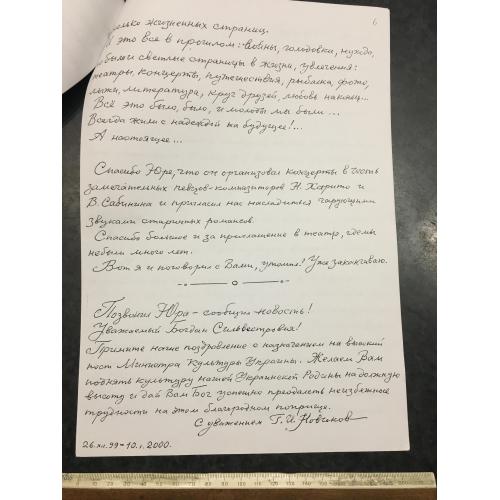 6
сколько жизненных страниц.
И это всё в прошлом: войны, голодовки, нужда,
но были и светлые страницы в жизни, увлечения:
театры, концерты, путешествия, рыбалка, фото,
лыжи, литература, круг друзей, любовь наконец...
Всё это было, было, и молоды мы были ...
Всегда жили с надеждой на будущее!...
А настоящее ...
Спасибо Юре, что он организовал концерты в честь
замечательных певцов-композиторов Н. Харито и
В. Сабинина и пригласил нас насладиться чарующими
звуками старинных романсов.
Спасибо большое и за приглашение в театр, где мы
не были много лет.
Вот я и поговорил с Вами, утомил! Уже заканчиваю.
Позвонил Юра - сообщил новость!
Уважаемый Богдан Сильвестрович!
Примите наше поздравление с назначением на высокий
пост Министра Культуры Украины. Желаем Вам
поднять культуру нашей Украинской Родины на должную
высоту и дай Вам Бог успешно преодолеть неизбежные
трудности на этом благородном поприще.
С уважением Г. И. Новиков
26.XII.99 - 10.I.2000.